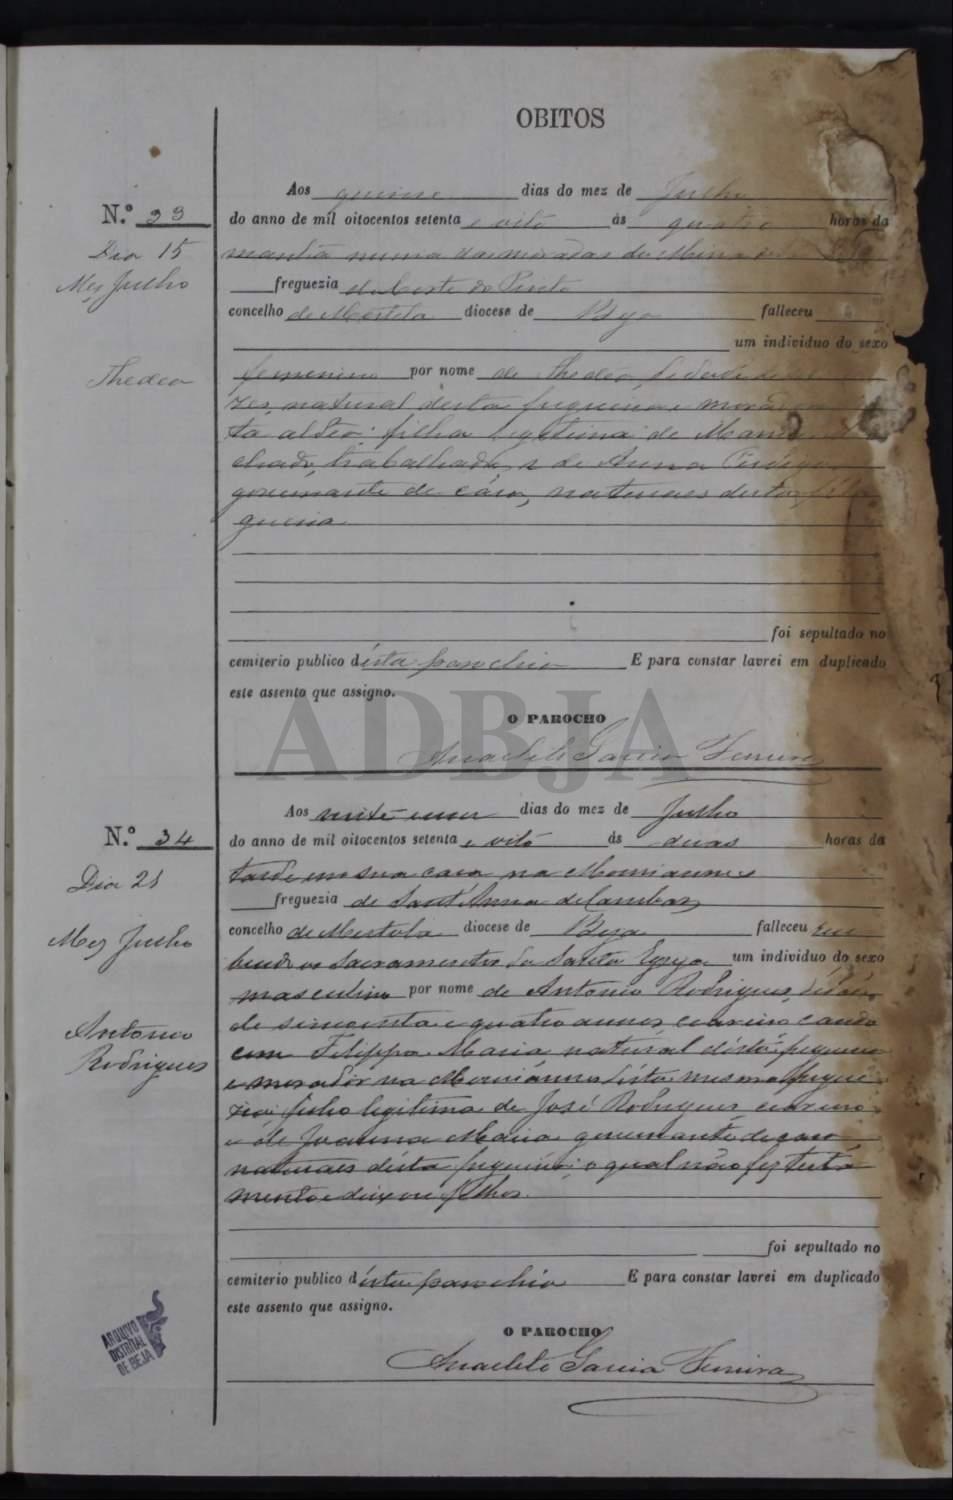 OBITOS
N.º 33
Dia 15
Mez Julho
Thedea
Aos quinse dias do mez de Julho
do anno de mil oitocentos setenta e oito ás quatro horas da
manhã numa das moradas da Mina de
freguezia do Corte do Pinto
concelho de Mertola diocese de Beja falleceu
um individuo do sexo
femenino por nome de Thedea, de idade de
zes, natural desta freguesia e moradora
ta aldea: filha legitima de Manoel
chado, trabalhador, e de Anna
governante de caza, naturaes desta fre
guezia
foi sepultado no
cemiterio publico d'esta parochia E para constar lavrei em duplicado
este assento que assigno.
O PAROCHO
Anacleto Garcia Ferreira
ADBJA
N.º 34
Dia 21
Mez Julho
Antonio
Rodrigues
Aos vinte e um dias do mez de Julho
do anno de mil oitocentos setenta e oito ás duas horas da
tarde em sua casa na
freguezia de Sant'Anna de Cambas
concelho de Mertola diocese de Beja falleceu rece
bendo os Sacramentos da Santa Egreja um individuo do sexo
masculino por nome de Antonio Rodrigues, de idade
de sincoenta e quatro annos, cazado
com Filippa Maria natural désta freguezia
e morador na désta mesma fregue
zia, filho legitimo de José Rodrigues
e de Joanna Maria governante de casa
naturaes désta freguezia; o qual não fez testa
mento e deixou filhos.
foi sepultado no
cemiterio publico d'esta parochia E para constar lavrei em duplicado
este assento que assigno.
O PAROCHO
Anacleto Garcia Ferreira
ARQUIVO
DISTRITAL
DE BEJA